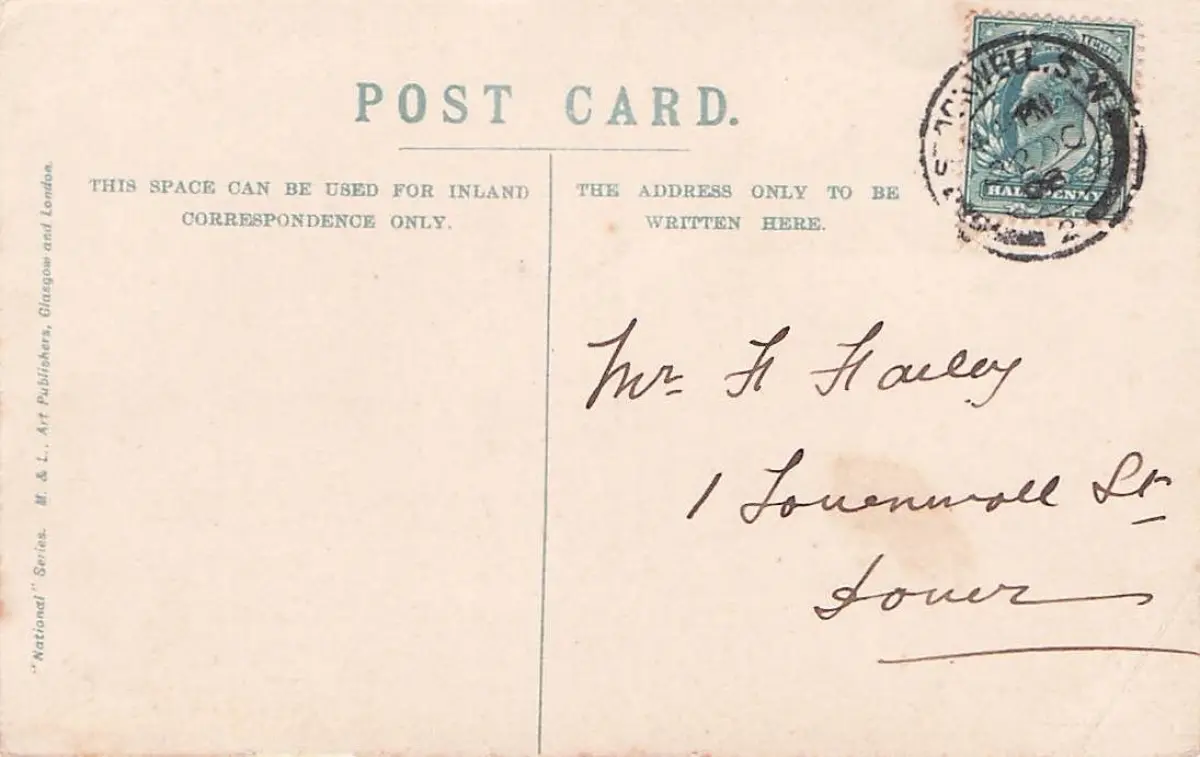 POST CARD.
THIS SPACE CAN BE USED FOR INLAND
CORRESPONDENCE ONLY.
THE ADDRESS ONLY TO BE
WRITTEN HERE.
"National" Series. M. & L., Art Publishers, Glasgow and London.
HALFPENNY
S.W.
PM
2
Mr
1 St
Dover